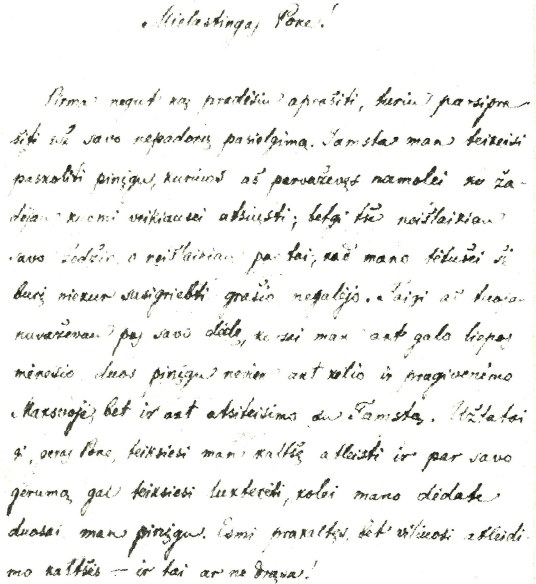 Mielastingas Pone!
Pirma negut ką pradėsiu aprašiti, turiu parsipra-
šiti už savo nepadorų pasielgimą. Tamsta man teikeisi
paskoliti pinigų, kuriuos aš parvaževęs namolei ža-
dėjau kuomi veikiausei atsiųsti; betgi tše neišlaikiau
savo žodžio, o neišlaikiau par tai, kad mano tėtušei ši
burį niekur susigriebti grašio negalėjo. Taigi aš tuojau
nuvaževau pas savo dėdę, kursai man ant galo liepos
mėnesio duos pinigų neken ant kelio ir pragivenimo
Maksvoje, bet ir ant atsiteisimo su Tamsta. Užtatai
gi, geras Pone, teiksiesi man kaltšę atleisti ir par savo
gerumą gal teiksiesi luktereti, kolei mano dėdatė
duosai man pinigų. Esmi prakaltęs, bet viliuosi atleidi-
mo kaltšės — ir tai ar ne drąsa!